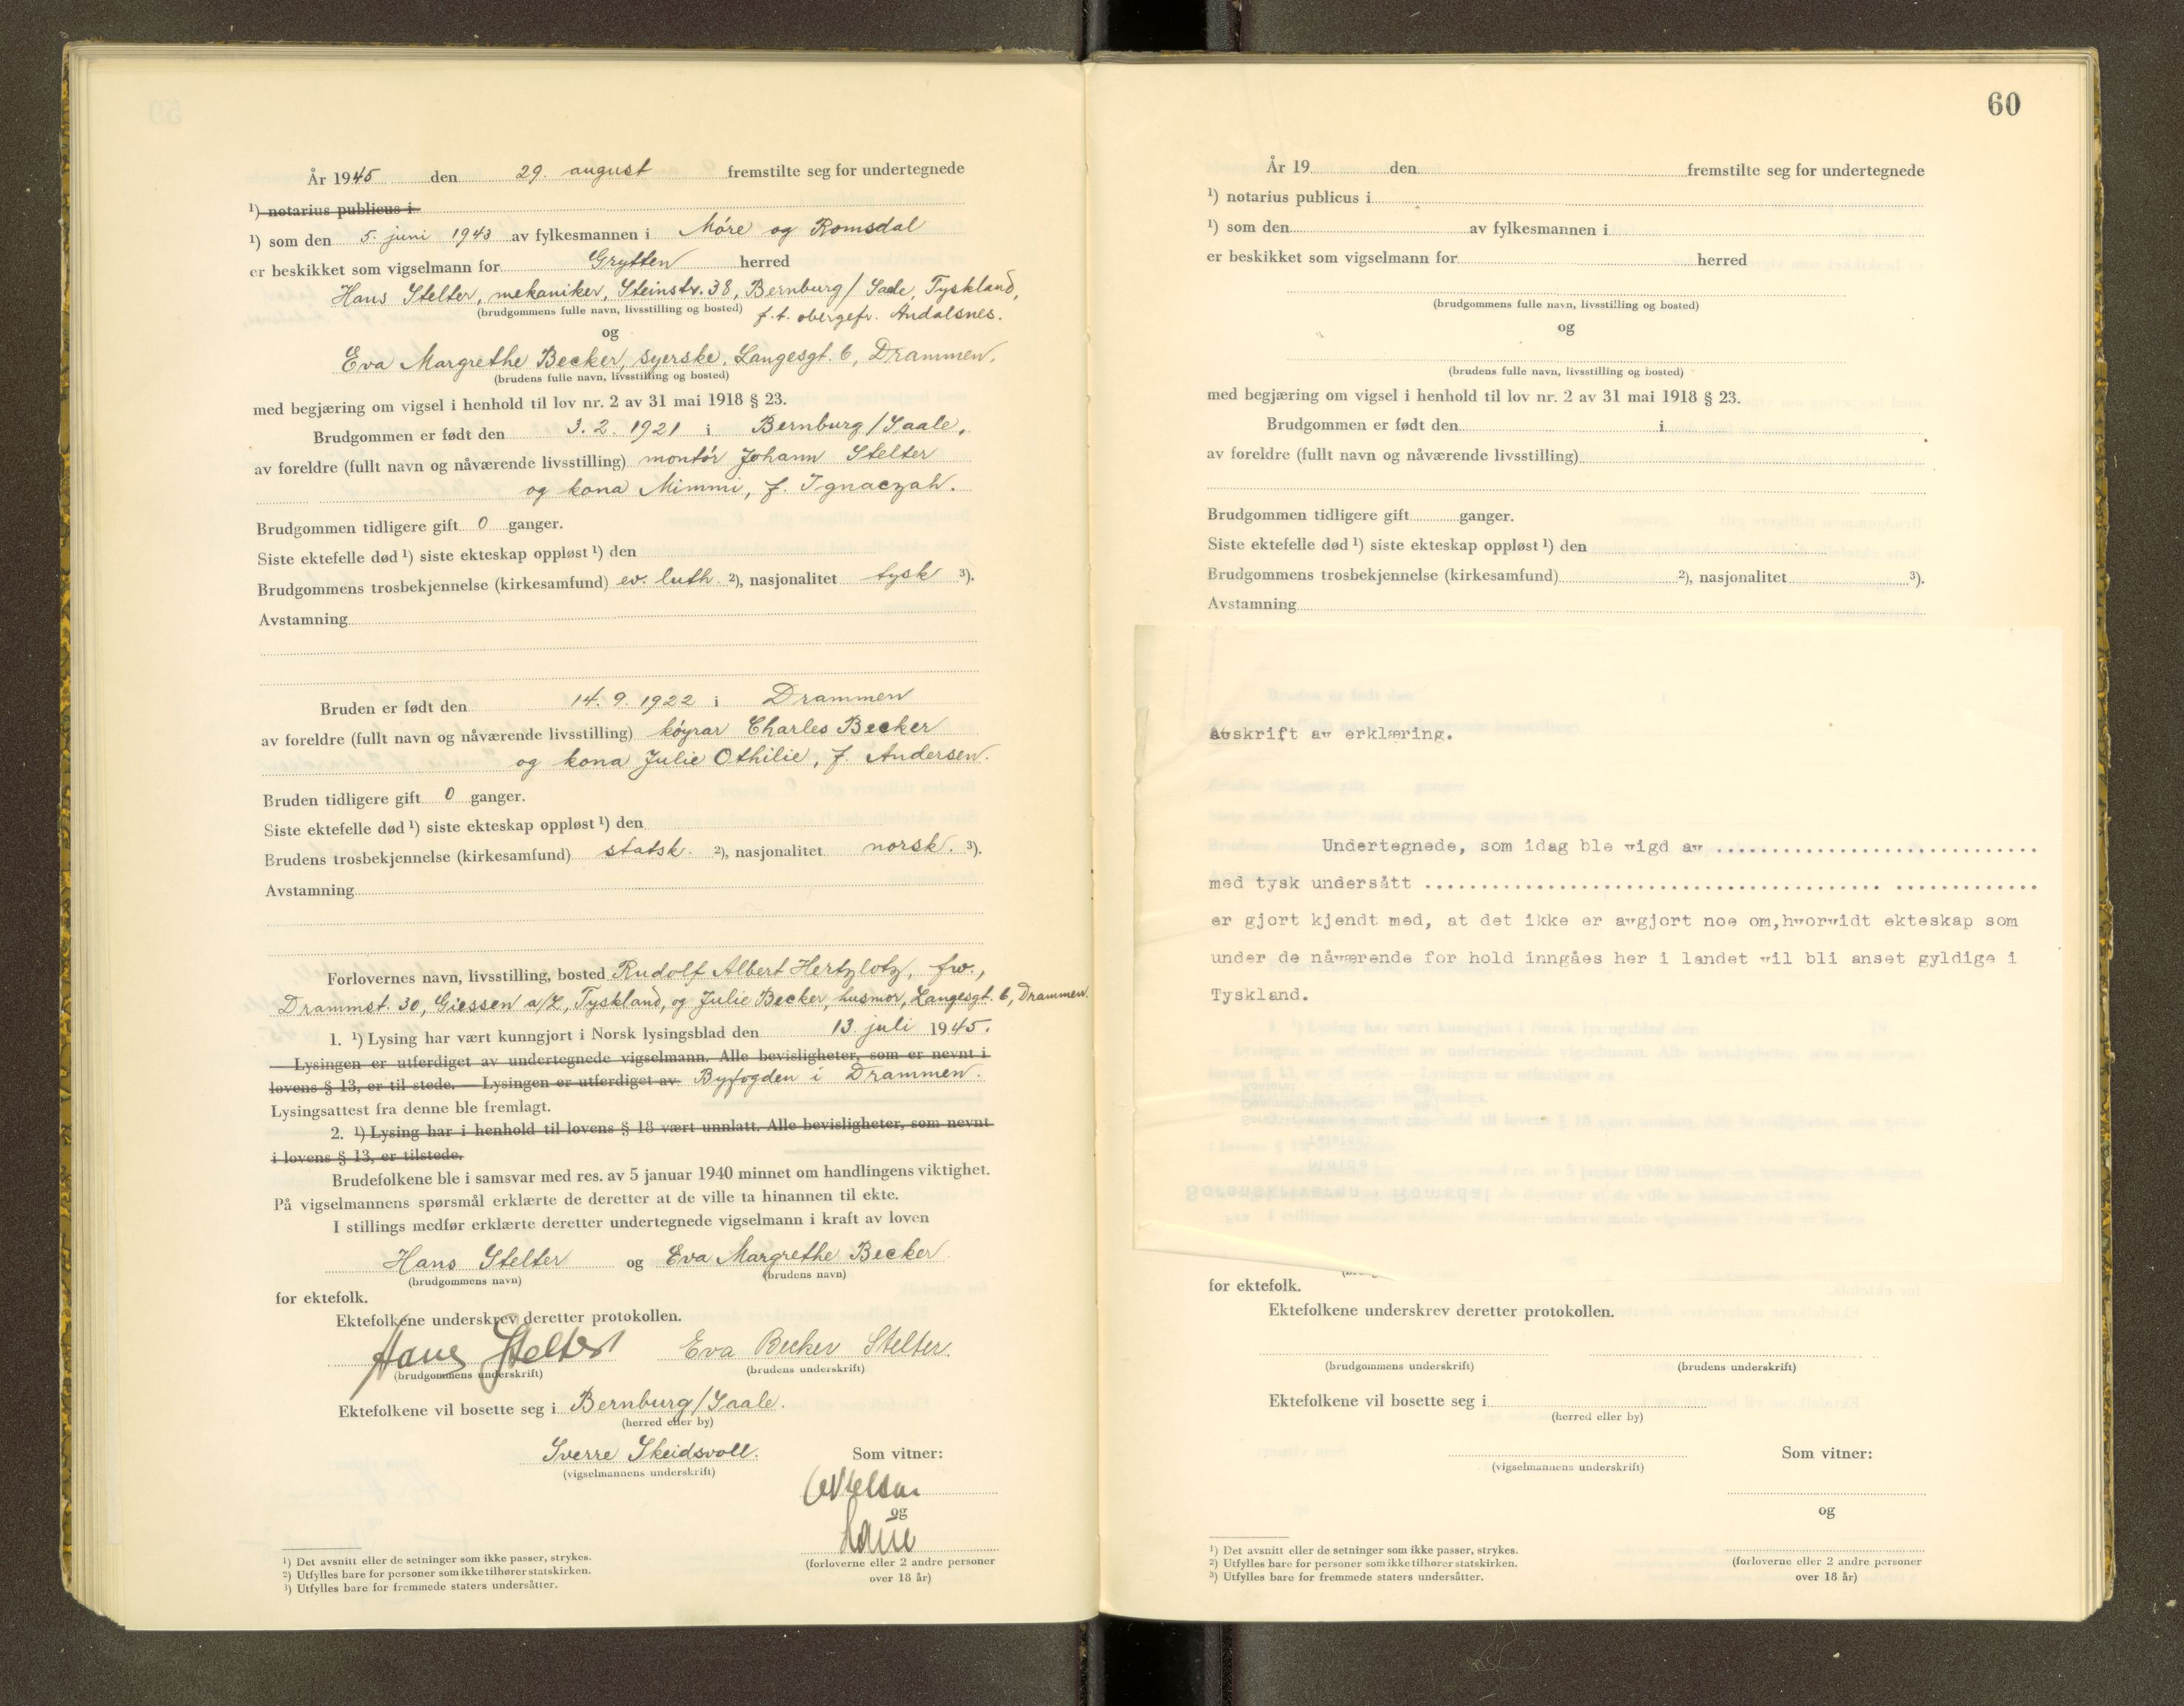 År 1945 den 29. august fremstilte seg for undertegnede
¹) notarius publicus i
¹) som den 5. juni 1943 av fylkesmannen i Møre og Romsdal
er beskikket som vigselmann for Grytten herred
Hans Stelter, mekaniker, Steinstr. 38, Bernburg/Saale, Tyskland,
(brudgommens fulle navn, livsstilling og bosted) f.t. obergefr. Åndalsnes.
og
Eva Margrethe Becker, syerske, Langesgt. 6, Drammen.
(brudens fulle navn, livsstilling og bosted)
med begjæring om vigsel i henhold til lov nr. 2 av 31 mai 1918 § 23.
Brudgommen er født den 3.2.1921 i Bernburg/Saale,
av foreldre (fullt navn og nåværende livsstilling) montør Johann Stelter
og kona Mimmi, f. Ignaczah.
Brudgommen tidligere gift 0 ganger.
Siste ektefelle død ¹) siste ekteskap oppløst ¹) den
Brudgommens trosbekjennelse (kirkesamfund) ev. luth. ²), nasjonalitet tysk ³).
Avstamning
Bruden er født den 14.9.1922 i Drammen
av foreldre (fullt navn og nåværende livsstilling) køyrar Charles Becker
og kona Julie Othilie, f. Andersen.
Bruden tidligere gift 0 ganger.
Siste ektefelle død ¹) siste ekteskap oppløst ¹) den
Brudens trosbekjennelse (kirkesamfund) statsk. ²), nasjonalitet norsk. ³).
Avstamning
Forlovernes navn, livsstilling, bosted Rudolf Albert Hertzlotz, fw.,
Drammst. 30, Giessen a/L, Tyskland, og Julie Becker, husmor, Langesgt. 6, Drammen.
1. ¹) Lysing har vært kunngjort i Norsk lysingsblad den 13. juli 1945.
Lysingen er utferdiget av undertegnede vigselmann. Alle bevisligheter, som er nevnt i
lovens § 13, er til stede. — Lysingen er utferdiget av Byfogden i Drammen.
Lysingsattest fra denne ble fremlagt.
2. ¹) Lysing har i henhold til lovens § 18 vært unnlatt. Alle bevisligheter, som nevnt
i lovens § 13, er tilstede.
Brudefolkene ble i samsvar med res. av 5 januar 1940 minnet om handlingens viktighet.
På vigselmannens spørsmål erklærte de deretter at de ville ta hinannen til ekte.
I stillings medfør erklærte deretter undertegnede vigselmann i kraft av loven
Hans Stelter og Eva Margrethe Becker
(brudgommens navn) (brudens navn)
for ektefolk.
Ektefolkene underskrev deretter protokollen.
Hans Stelter Eva Becker Stelter.
(brudgommens underskrift) (brudens underskrift)
Ektefolkene vil bosette seg i Bernburg/Saale.
(herred eller by)
Sverre Skeidsvoll. Som vitner:
(vigselmannens underskrift)
og
(forloverne eller 2 andre personer
over 18 år)
¹) Det avsnitt eller de setninger som ikke passer, strykes.
²) Utfylles bare for personer som ikke tilhører statskirken.
³) Utfylles bare for fremmede staters undersåtter.
60
År 19 den fremstilte seg for undertegnede
¹) notarius publicus i
¹) som den av fylkesmannen i
er beskikket som vigselmann for herred
(brudgommens fulle navn, livsstilling og bosted)
og
(brudens fulle navn, livsstilling og bosted)
med begjæring om vigsel i henhold til lov nr. 2 av 31 mai 1918 § 23.
Brudgommen er født den i
av foreldre (fullt navn og nåværende livsstilling)
Brudgommen tidligere gift ganger.
Siste ektefelle død ¹) siste ekteskap oppløst ¹) den
Brudgommens trosbekjennelse (kirkesamfund) ²), nasjonalitet ³).
Avstamning
Avskrift av erklæring.
Undertegnede, som idag ble vigd av ............................
med tysk undersått ........................................ .............
er gjort kjendt med, at det ikke er avgjort noe om,hvorvidt ekteskap som
under de nåværende for hold inngåes her i landet vil bli anset gyldige i
Tyskland.
for ektefolk.
Ektefolkene underskrev deretter protokollen.
(brudgommens underskrift) (brudens underskrift)
Ektefolkene vil bosette seg i
(herred eller by)
Som vitner:
(vigselmannens underskrift)
og
(forloverne eller 2 andre personer
over 18 år)
¹) Det avsnitt eller de setninger som ikke passer, strykes.
²) Utfylles bare for personer som ikke tilhører statskirken.
³) Utfylles bare for fremmede staters undersåtter.